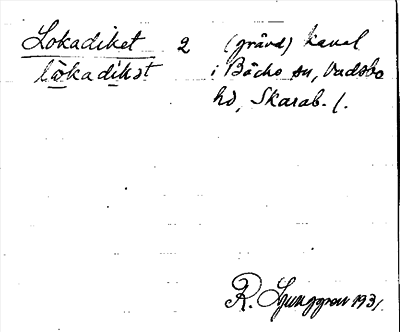 Lokadiket 2 (grävd) kanal
lo̱kadi̱kət i Bäcks sn, Vadsbo
hd, Skarab. l.
R. Ljunggren 1931.